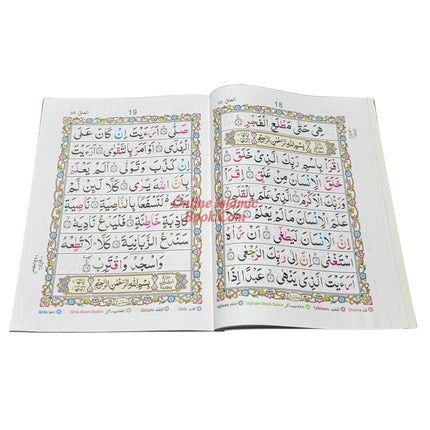 العلق ٩٦
18
هِىَ حَتّٰى مَطْلَعِ الْفَجْرِ
بِسْمِ اللّٰهِ الرَّحْمٰنِ الرَّحِيْمِ
اِقْرَاْ بِاسْمِ رَبِّكَ الَّذِىْ خَلَقَ
خَلَقَ الْاِنْسَانَ مِنْ عَلَقٍ اِقْرَاْ
وَرَبُّكَ الْاَكْرَمُ الَّذِىْ عَلَّمَ بِالْقَلَمِ
عَلَّمَ الْاِنْسَانَ مَا لَمْ يَعْلَمْ كَلَّا
اِنَّ الْاِنْسَانَ لَيَطْغٰى اَنْ رَّاٰهُ
اسْتَغْنٰى اِنَّ اِلٰى رَبِّكَ الرُّجْعٰى
اَرَءَيْتَ الَّذِىْ يَنْهٰى عَبْدًا اِذَا
Tafkheem
Ghunna
العلق ٩٦
19
صَلّٰى اَرَءَيْتَ اِنْ كَانَ عَلَى
الْهُدٰى اَوْ اَمَرَ بِالتَّقْوٰى اَرَءَيْتَ
اِنْ كَذَّبَ وَتَوَلّٰى اَلَمْ يَعْلَمْ
بِاَنَّ اللّٰهَ يَرٰى كَلَّا لَئِنْ لَّمْ
يَنْتَهِ لَنَسْفَعًا بِالنَّاصِيَةِ نَاصِيَةٍ
كَاذِبَةٍ خَاطِئَةٍ فَلْيَدْعُ نَادِيَهٗ
سَنَدْعُ الزَّبَانِيَةَ كَلَّا لَا تُطِعْهُ
وَاسْجُدْ وَاقْتَرِبْ
بِسْمِ اللّٰهِ الرَّحْمٰنِ الرَّحِيْمِ
Ikhfa
Ikhfa Meem Saakin
Qalqala
Qalb
Online Islamic
Book.Com